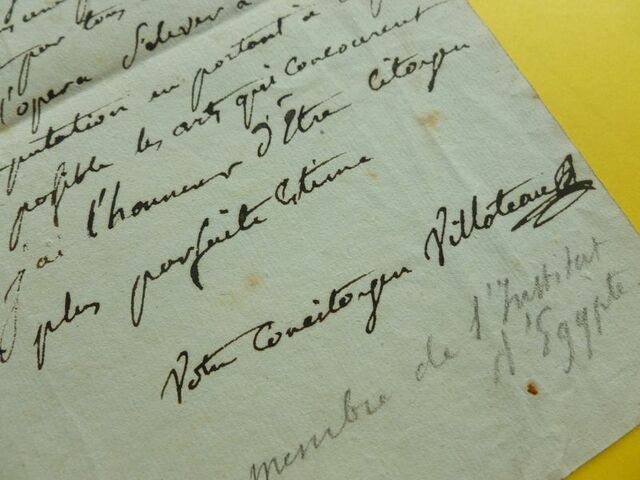 pour tous
l'opera s'elever à
putation en portant à
possible les arts qui concourent
j'ai l'honneur d'être citoyen
plus parfaite Estime
Votre Concitoyen Villoteau
membre de l'Institut
d'Egypte